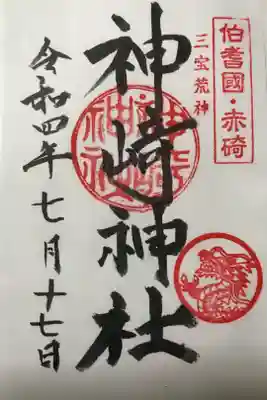 伯耆國・赤碕
三宝荒神
神﨑神社
神﨑神社
令和四年七月十七日